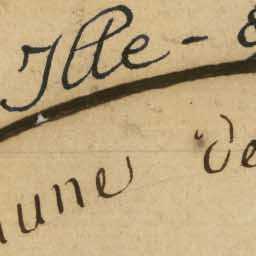 Ille - &
mune de